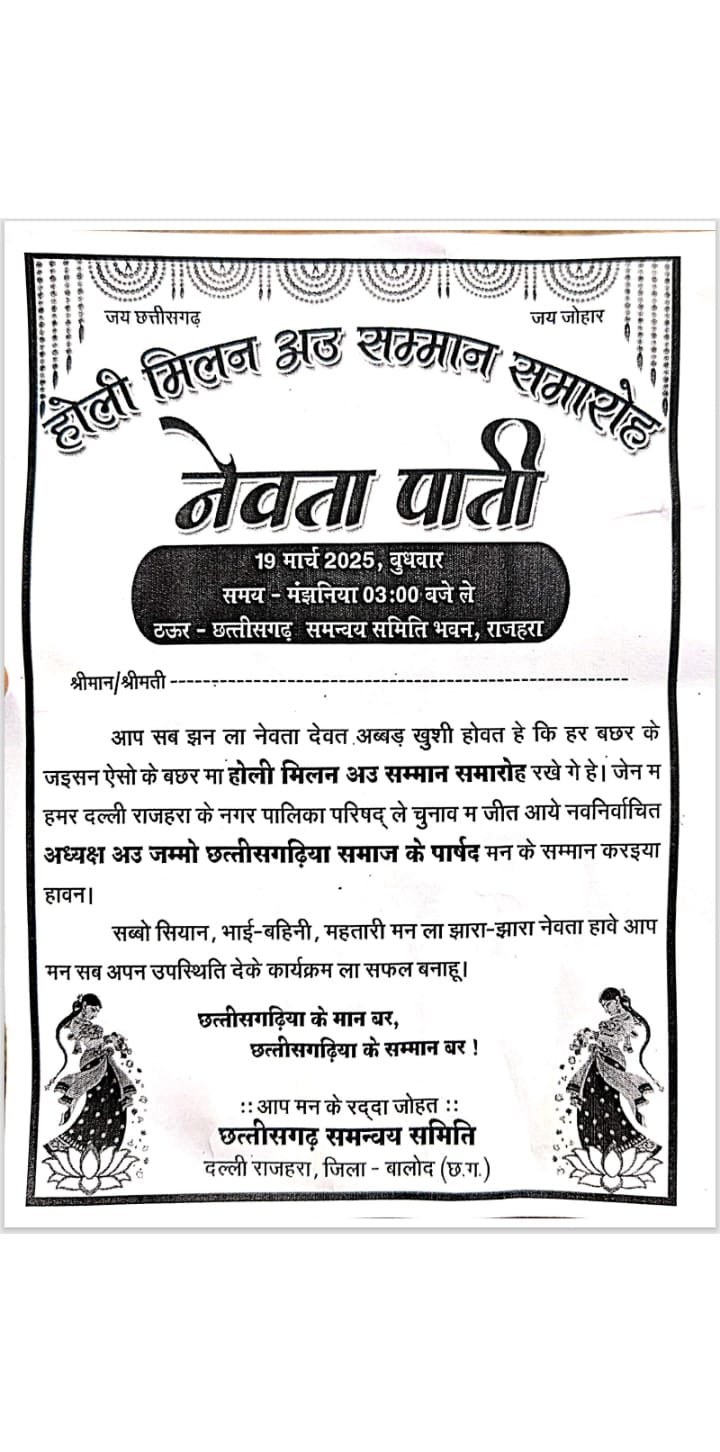 जय छत्तीसगढ़ जय जोहार
होली मिलन अउ सम्मान समारोह
नेवता पाती
19 मार्च 2025, बुधवार
समय - मंझनिया 03:00 बजे ले
ठऊर - छत्तीसगढ़ समन्वय समिति भवन, राजहरा
श्रीमान/श्रीमती ------------------------------------------------------------
आप सब झन ला नेवता देवत अब्बड़ खुशी होवत हे कि हर बछर के
जइसन ऐसो के बछर मा होली मिलन अउ सम्मान समारोह रखे गे हे। जेन म
हमर दल्ली राजहरा के नगर पालिका परिषद् ले चुनाव म जीत आये नवनिर्वाचित
अध्यक्ष अउ जम्मो छत्तीसगढ़िया समाज के पार्षद मन के सम्मान करइया
हावन।
सब्बो सियान, भाई-बहिनी, महतारी मन ला झारा-झारा नेवता हावे आप
मन सब अपन उपस्थिति देके कार्यक्रम ला सफल बनाहू।
छत्तीसगढ़िया के मान बर,
छत्तीसगढ़िया के सम्मान बर !
:: आप मन के रद्दा जोहत ::
छत्तीसगढ़ समन्वय समिति
दल्ली राजहरा, जिला - बालोद (छ.ग.)